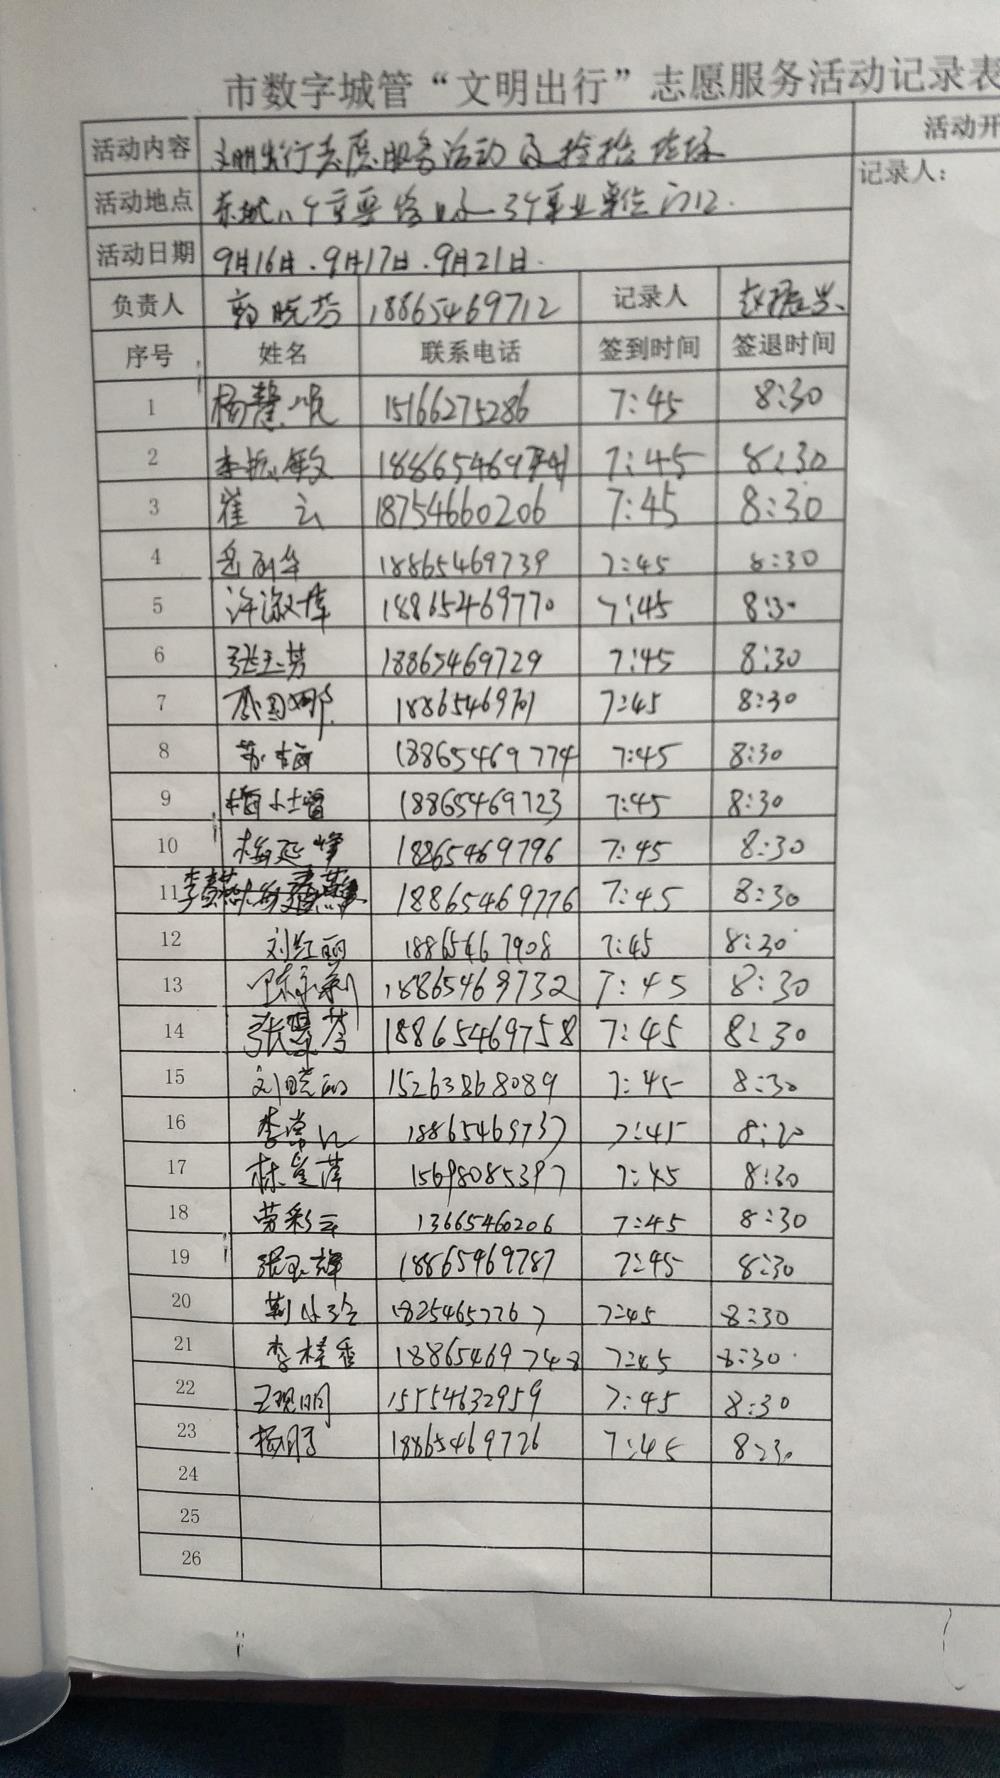 市数字城管“文明出行”志愿服务活动记录表
活动内容 文明出行志愿服务活动及捡拾垃圾 活动开
活动地点 东城八个重要路口 3个事业单位门口. 记录人:
活动日期 9月16日、9月17日、9月21日.
负责人 郭晓芬 18865469712 记录人
序号 姓名 联系电话 签到时间 签退时间
1 杨慧 15166275286 7:45 8:30
2 李振敏 188654697 7:45 8:30
3 崔云 18754660206 7:45 8:30
4 岳丽华 18865469739 7:45 8:30
5 许淑 18865469770 7:45 8:30
6 张玉芳 18865469729 7:45 8:30
7 国娜 7:45 8:30
8 苏梅 18865469774 7:45 8:30
9 梅小 18865469723 7:45 8:30
10 杨延峰 18865469796 7:45 8:30
11 李 18865469776 7:45 8:30
12 刘红丽 18865467908 7:45 8:30
13 陈 18865469732 7:45 8:30
14 张景芩 18865469758 7:45 8:30
15 刘晓丽 15263868089 7:45 8:30
16 李常 18865469737 7:45 8:20
17 林 萍 15698085397 7:45 8:30
18 劳彩云 13665460206 7:45 8:30
19 张玉辉 18865469787 7:45 8:30
20 荆小玲 7:45 8:30
21 李桂香 18865469748 7:45 8:30
22 王观明 15554632959 7:45 8:30
23 杨 18865469726 7:45 8:30
24
25
26